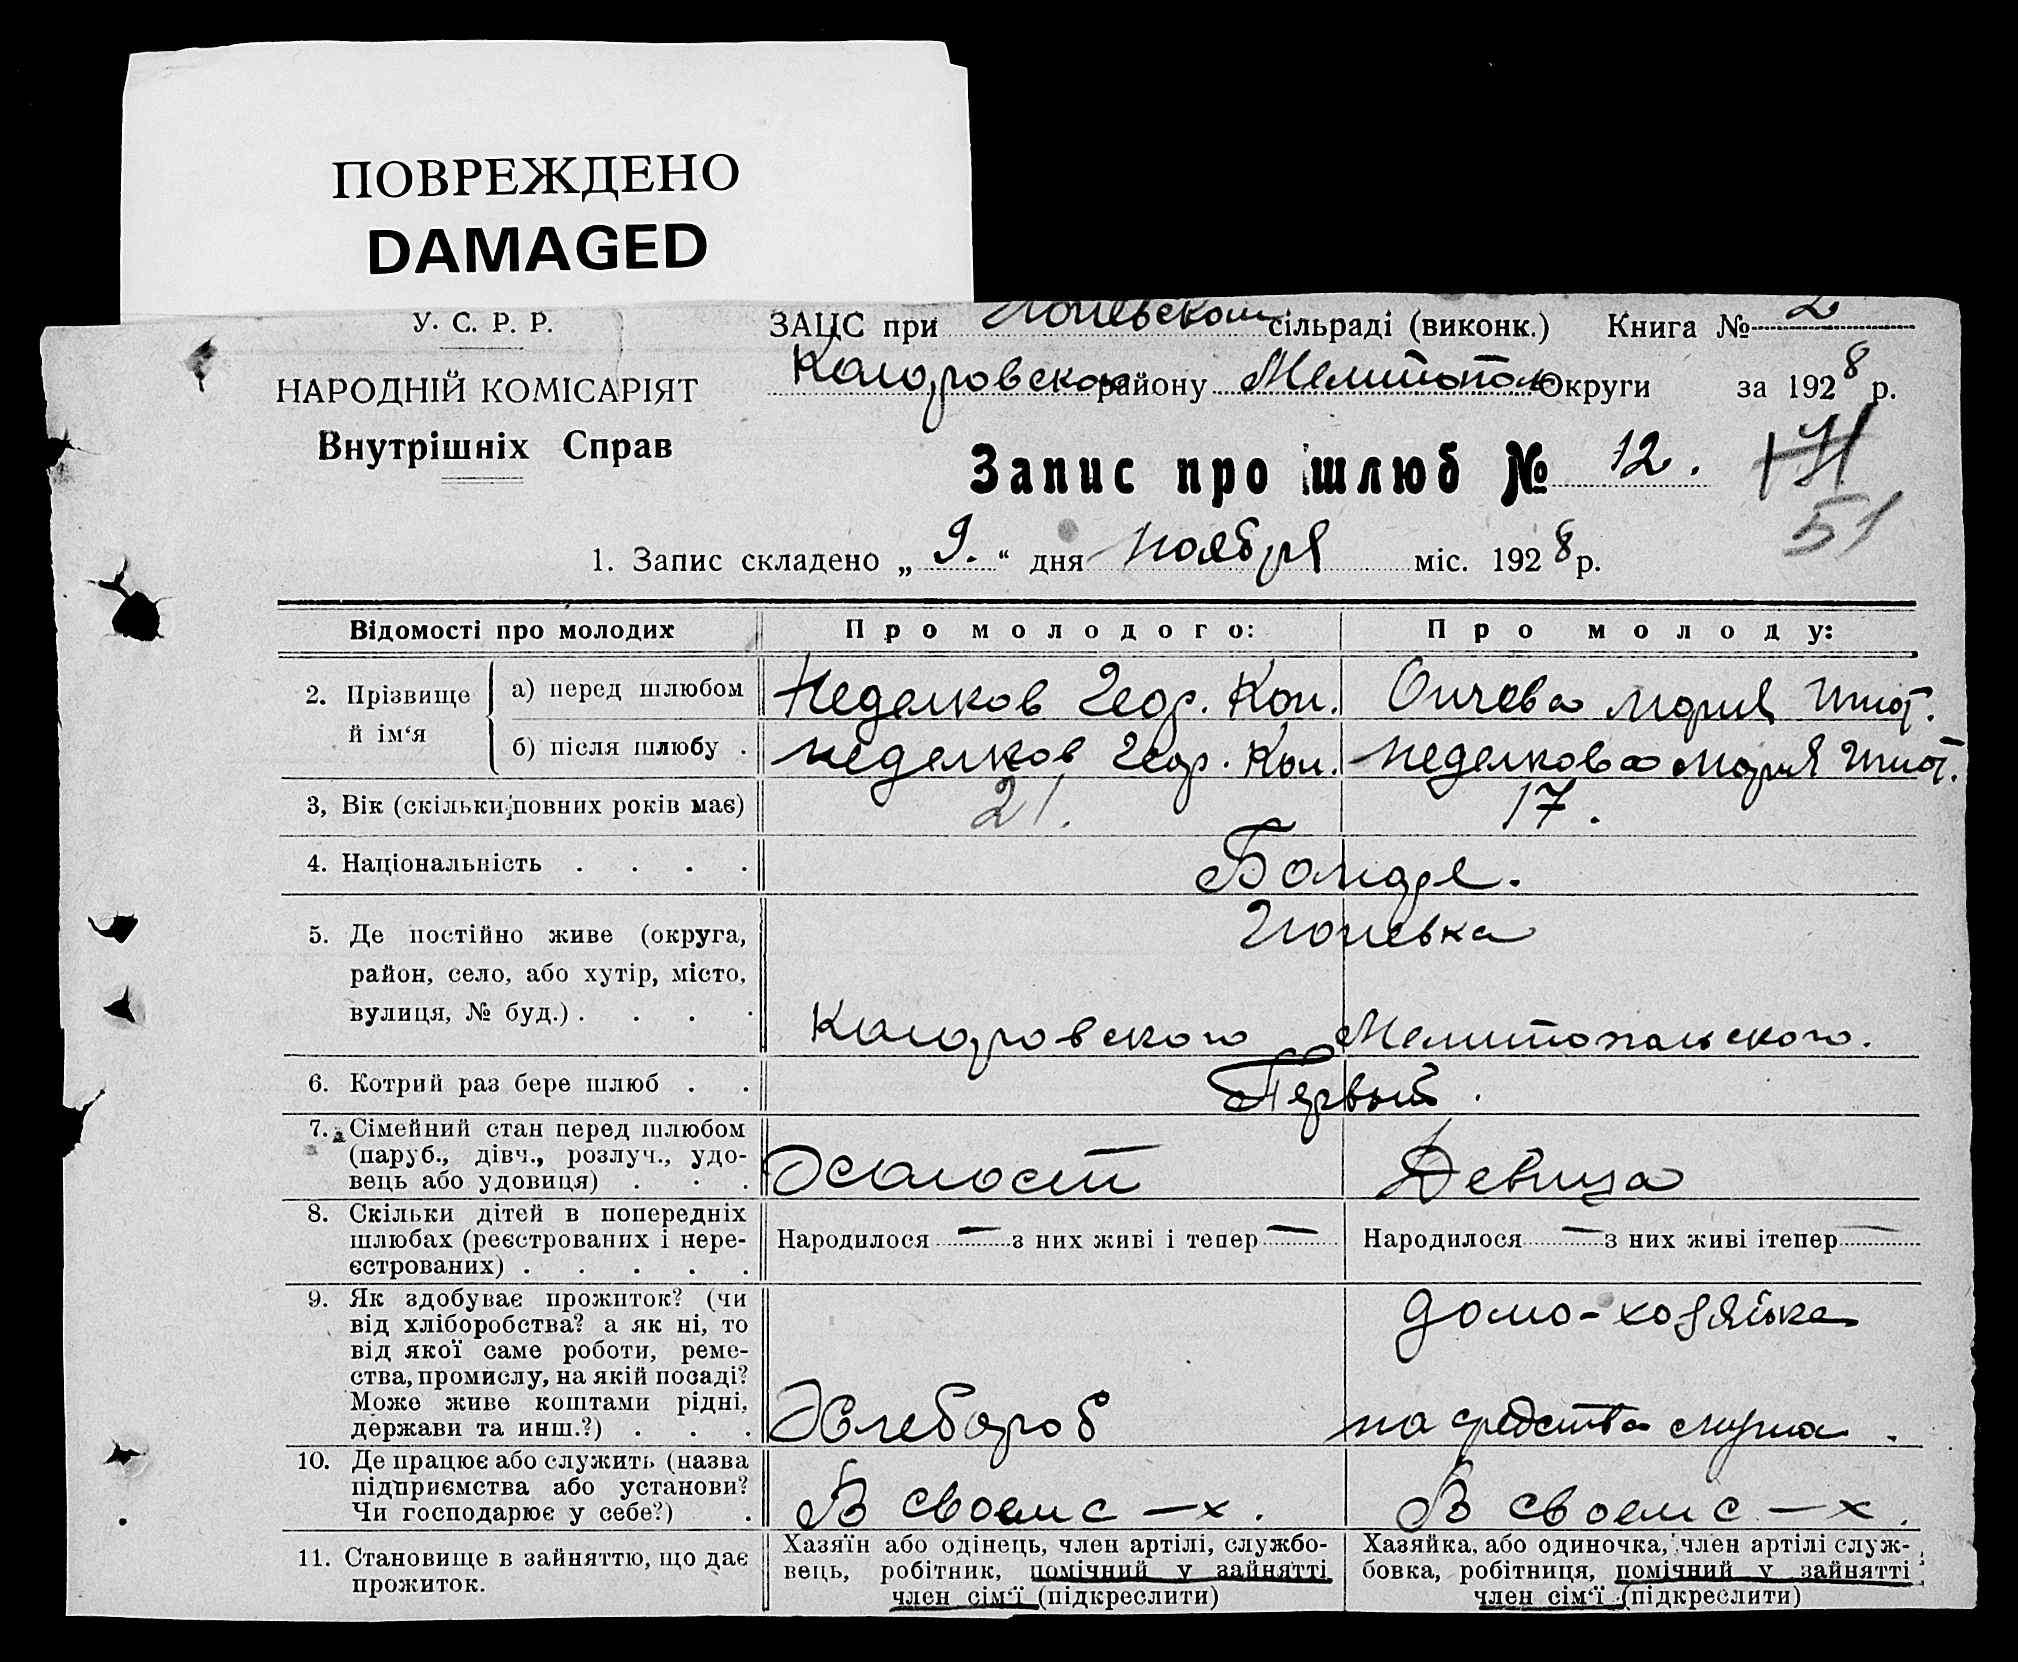 ПОВРЕЖДЕНО
DAMAGED
У. С. Р. Р.
НАРОДНІЙ КОМІСАРІЯТ
Внутрішніх Справ
ЗАЦС при сільраді (виконк.) Книга № 2
району Мелитопол Округи за 1928 р.
Запис про шлюб № 12.
51
1. Запис складено „ 9. “ дня ноября міс. 1928 р.
Відомості про молодих Про молодого: Про молоду:
2. Прізвище й ім‘я
а) перед шлюбом Неделков Геор. Кон. Мария Игнат.
б) після шлюбу . Неделков Геор. Кон. Неделкова Мария Игнат.
3, Вік (скільки повних років має) 21. 17.
4. Національність . . . .
5. Де постійно живе (округа,
район, село, або хутір, місто,
вулиця, № буд.) . . . .
Мелитопольского.
6. Котрий раз бере шлюб . . Первый.
7. Сімейний стан перед шлюбом
(паруб., дівч., розлуч., удо-
вець або удовиця) . . . Холост Девица
8. Скільки дітей в попередніх
шлюбах (реєстрованих і нере-
єстрованих) . . . . .
Народилося — з них живі і тепер — Народилося — з них живі ітепер —
9. Як здобуває прожиток? (чи
від хліборобства? а як ні, то
від якої саме роботи, реме-
ства, промислу, на якій посаді?
Може живе коштами рідні,
держави та инш.?) . . .
Хлебороб
домо-хозяйка
на средства мужа.
10. Де працює або служить (назва
підприємства або установи?
Чи господарює у себе?) .
В своем с—х. В своем с—х.
11. Становище в зайняттю, що дає
прожиток.
Хазяїн або одінець, член артілі, службо-
вець, робітник, помічний у зайнятті
член сім‘ї (підкреслити)
Хазяйка, або одиночка, член артілі служ-
бовка, робітниця, помічний у зайнятті
член сім‘ї (підкреслити)